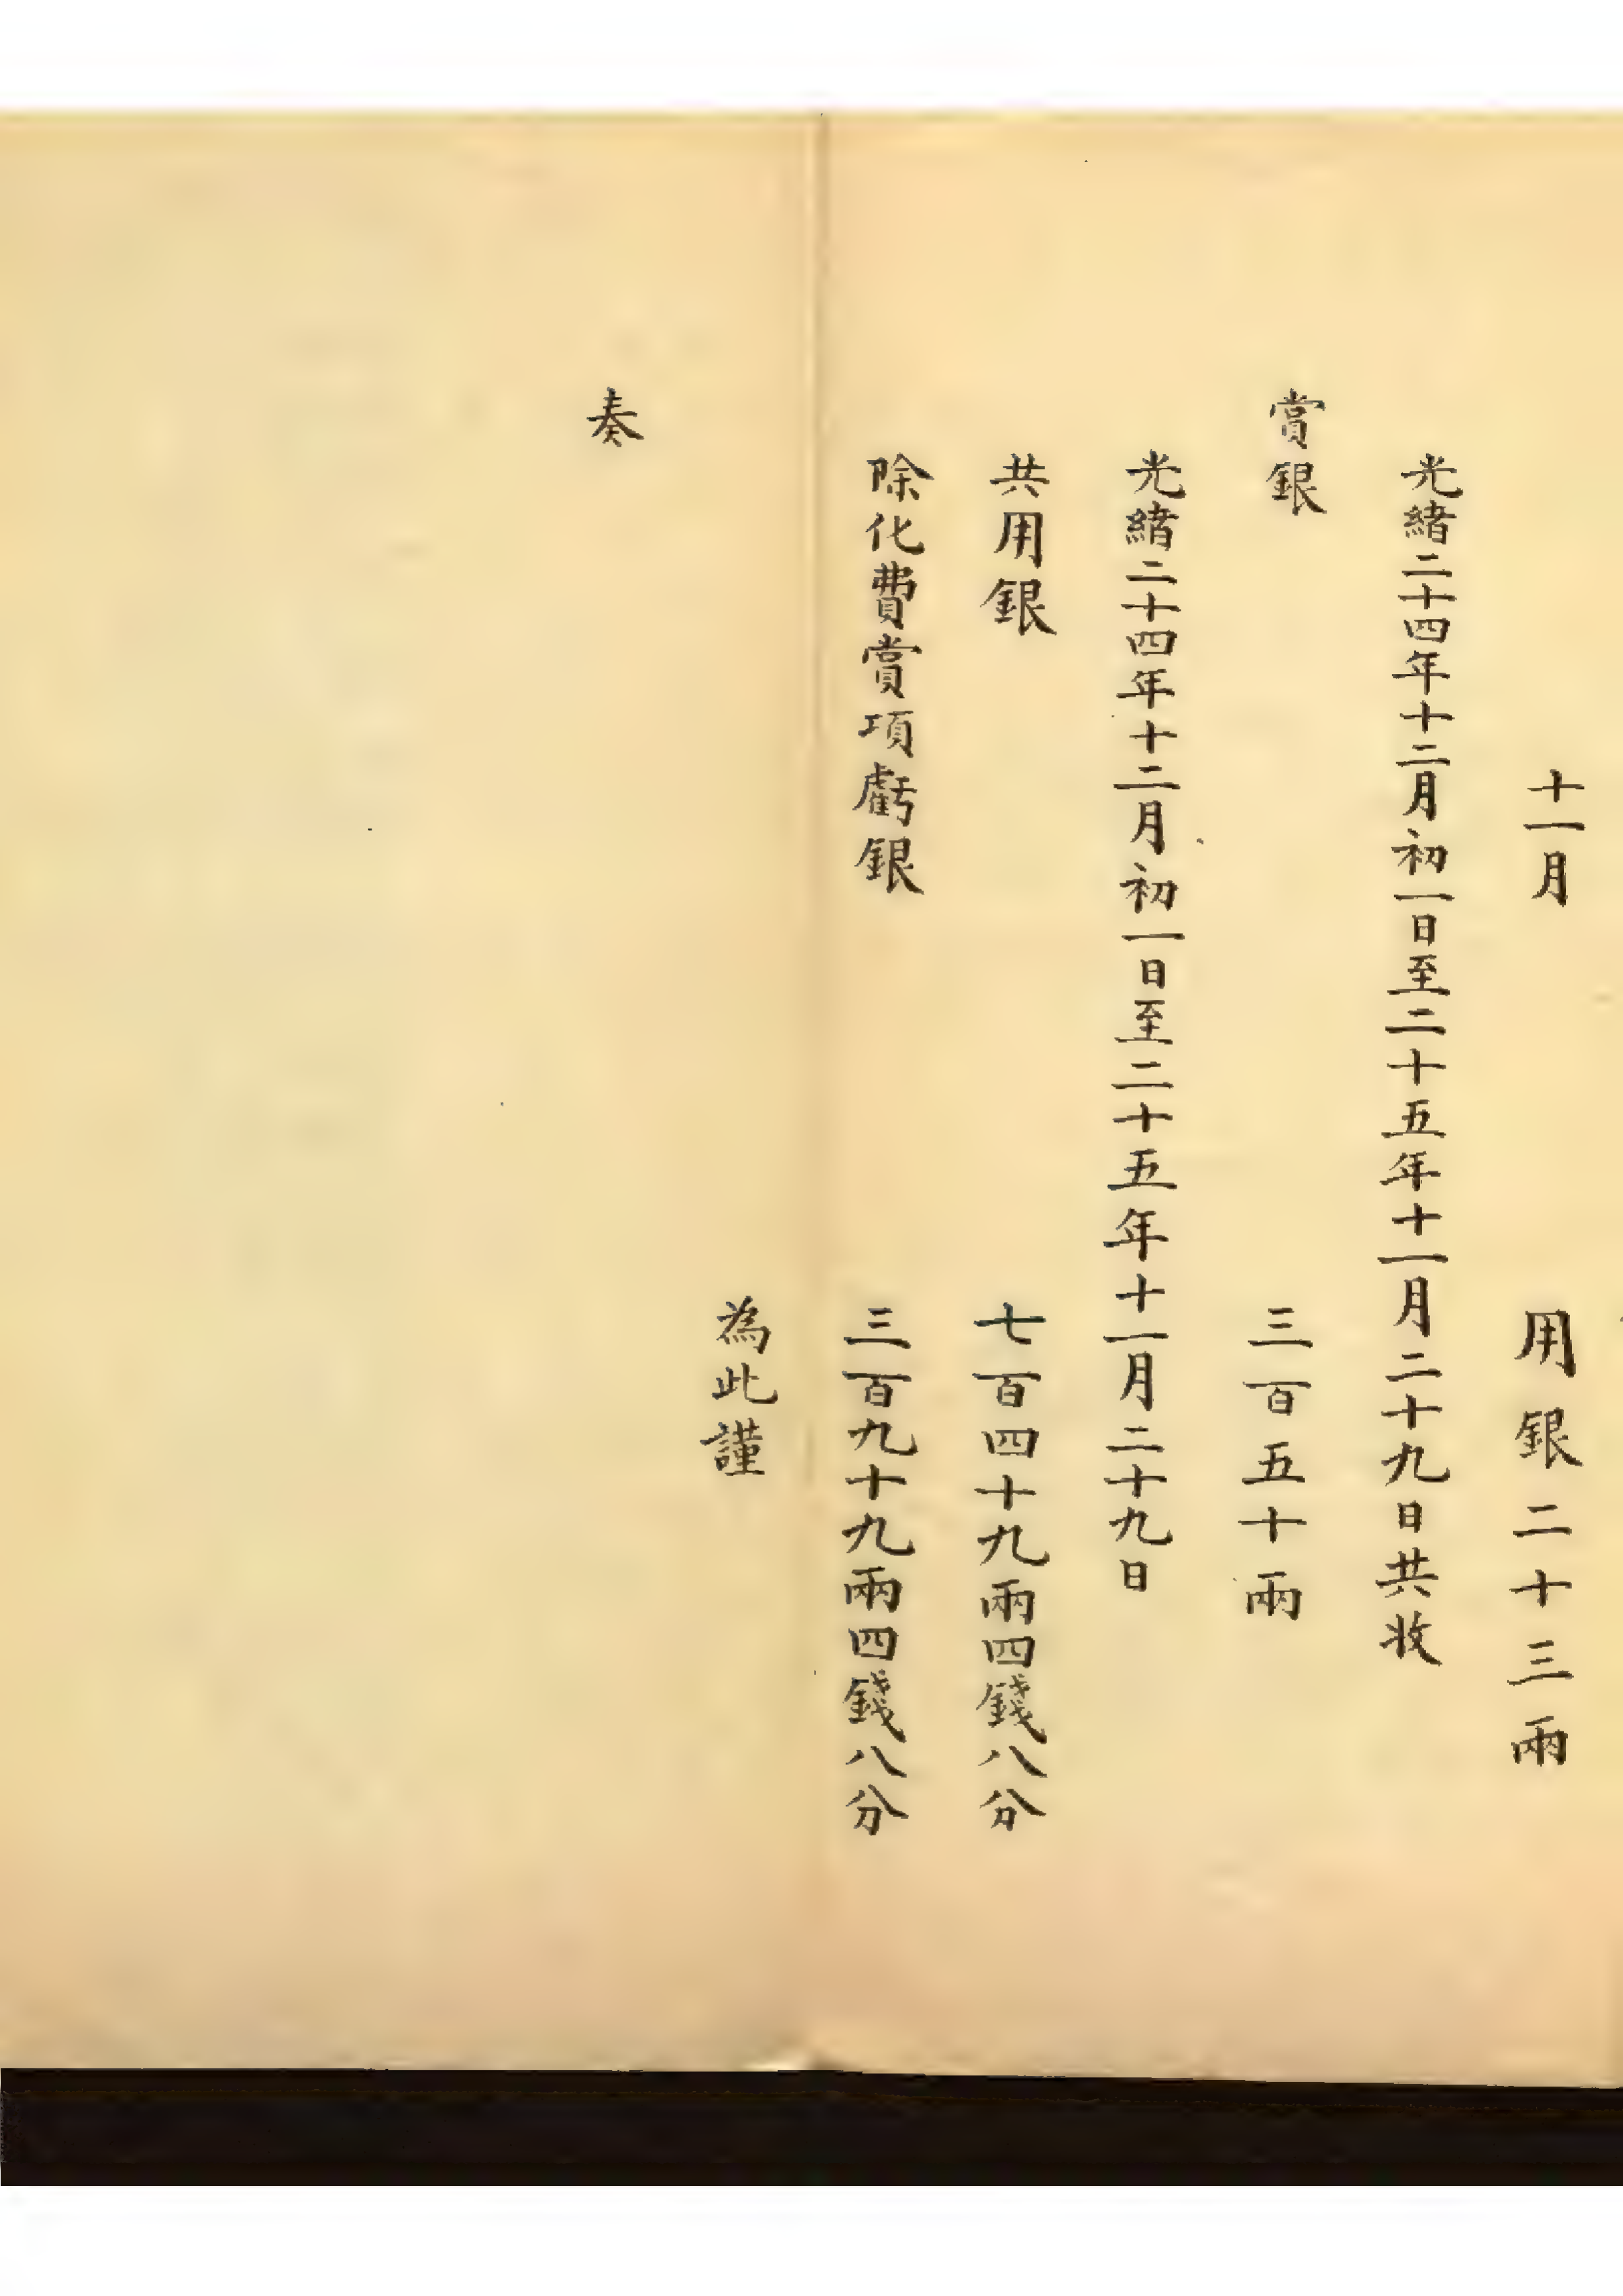 十一月 用銀二十三兩
光緒二十四年十二月初一日至二十五年十一月二十九日共收
賞銀 三百五十兩
光緒二十四年十二月初一日至二十五年十一月二十九日
共用銀 七百四十九兩四錢八分
除化費賞項虧銀 三百九十九兩四錢八分
為此謹
奏